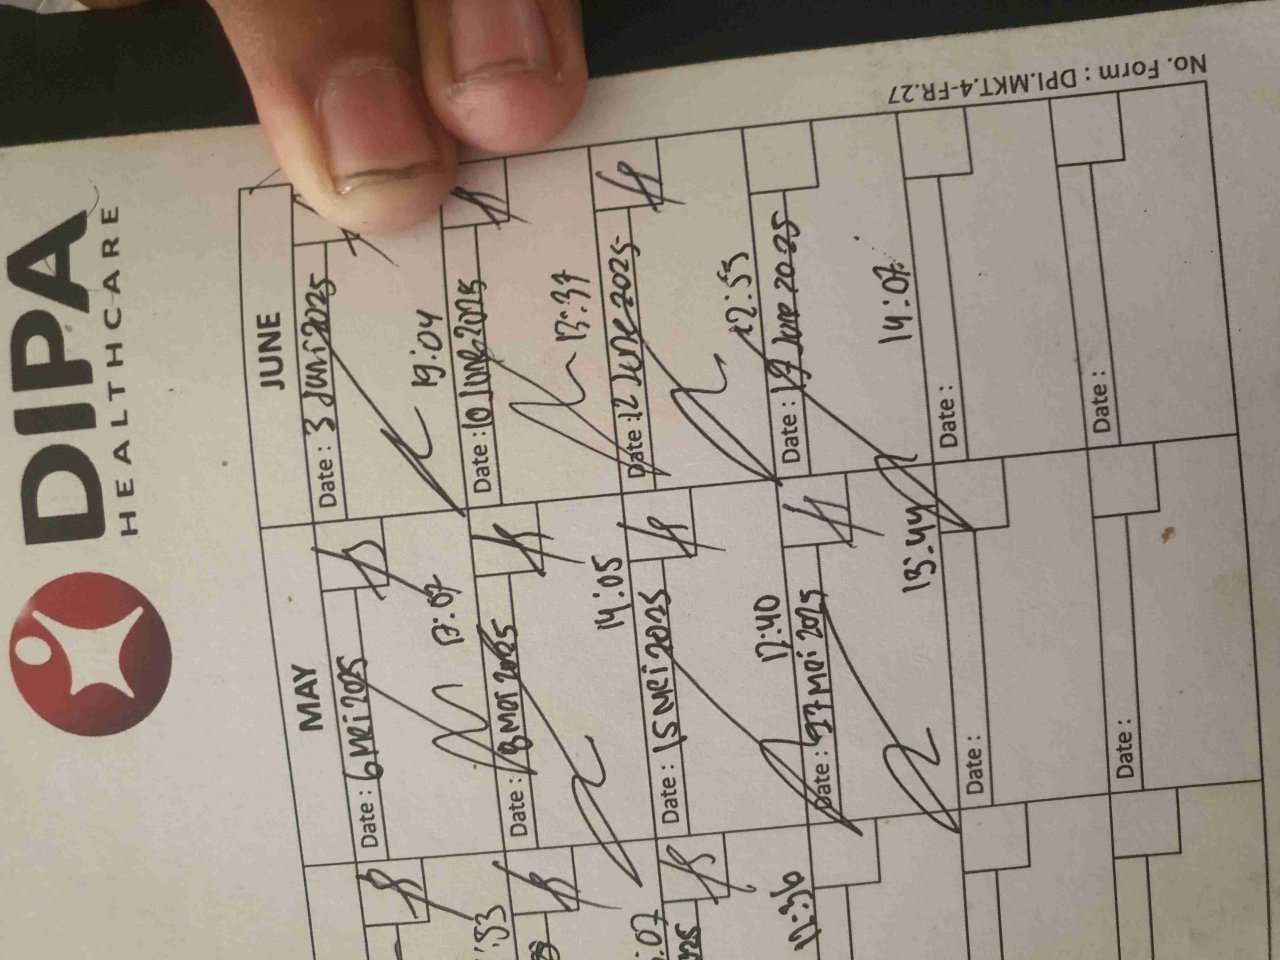 DIPA
HEALTHCARE
MAY
JUNE
Date : 6 Mei 2025
17:07
Date : 3 Juni 2025
19:04
Date : 8 Mei 2025
14:05
Date : 10 June 2025
13:37
Date : 15 Mei 2025
17:40
Date : 12 June 2025
12:53
Date : 27 Mei 2025
13:44
Date : 19 June 2025
14:07
Date :
Date :
Date :
Date :
:33
:07
025
17:36
No. Form : DPI.MKT.4-FR.27